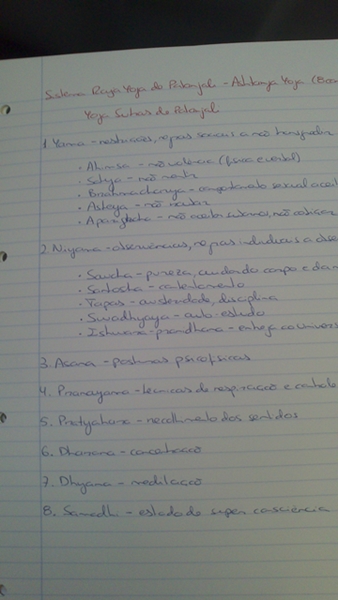 Sistema Raja Yoga do Patanjali - Ashtanga Yoga (Base
Yoga Sutras de Patanjali
1. Yama - restrições, regras sociais a não transgredir
• Ahimsa - não violência (física e verbal)
• Satya - não mentir
• Brahmacharya - comportamento sexual aceit
• Asteya - não roubar
• Aparigraha - não aceitar suborno, não cobiçar
2. Niyama - observâncias, regras individuais a obse
• Saucha - pureza, cuidar do corpo e da m
• Santosha - contentamento
• Tapas - austeridade, disciplina
• Swadhyaya - auto-estudo
• Ishwara-pranidhana - entrega ao universo
3. Asana - posturas psicofísicas
4. Pranayama - técnicas de respiração e controle
5. Pratyahara - recolhimento dos sentidos
6. Dharana - concentração
7. Dhyana - meditação
8. Samadhi - estado de super consciência